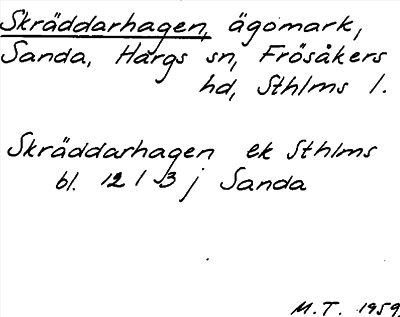 Skräddarhagen, ägomark,
Sanda, Hargs sn, Frösåkers
hd, Sthlms l.
Skräddarhagen ek Sthlms
bl. 12 I 3 j Sanda
M.T. 1959.